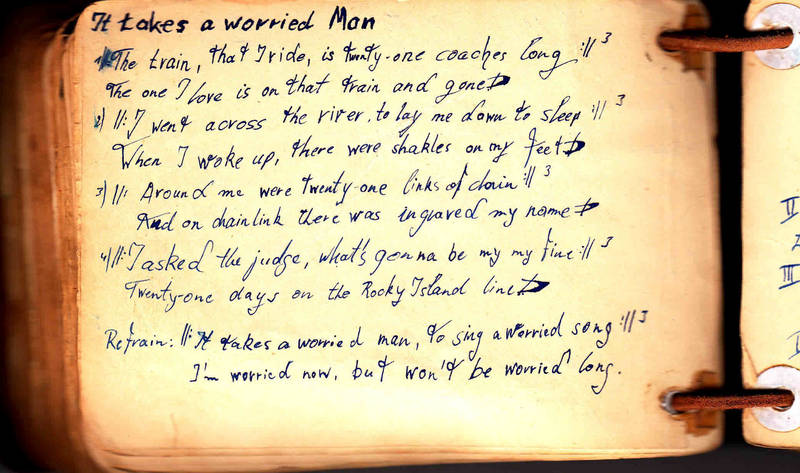 It takes a worried Man
1) ||: The train, that I ride, is twenty-one coaches long :|| 3
The one I love is on that train and gone
2) ||: I went across the river, to lay me down to sleep :|| 3
When I woke up, there were shakles on my feet
3) ||: Around me were twenty-one links of chain :|| 3
And on chainlink there was ingraved my name
4) ||: I asked the judge, what's gonna be my my fine :|| 3
Twenty-one days on the Rocky Island line
Refrain: ||: It takes a worried man, to sing a worried song :|| 3
I'm worried now, but won't be worried long.
II
III